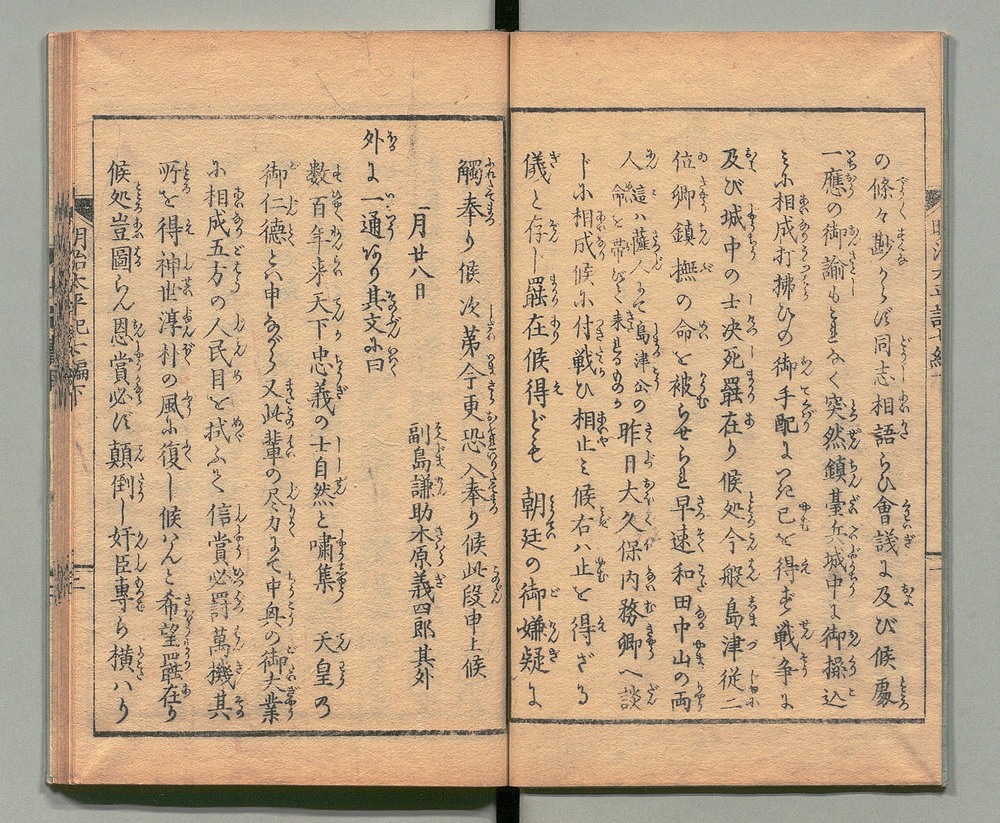 の條々尠からず同志相語らひ會議に及び候處
一應の御諭もこれなく突然鎮臺兵城中に御操込
に相成打拂ひの御手配につき已を得ず戦争に
及び城中の士决死罷在り候処今般島津従二
位卿鎮撫の命を被らせられ早速和田中山の両
人這ハ薩人にて島津公の命を帯びて来れるものか昨日大久保内務卿へ談
じに相成候に付戦ひ相止ミ候右ハ止を得ざる
儀と存じ罷在候得ども 朝廷の御嫌疑に
觸奉り候次第今更恐入奉り候此段申上候
一月廿八日
副島謙助木原義四郎其外
外に一通あり其文に曰
数百年来天下忠義の士自然と嘯集 天皇の
御仁徳とハ申ながら又此輩の尽力にて中興の御大業
に相成五方の人民目を拭ふて信賞必罰萬機其
所を得神世淳朴の風に復し候はんと希望罷在り
候処豈圖らん恩賞必ず顛倒し奸臣専ら横ハり
明治太平記七編下